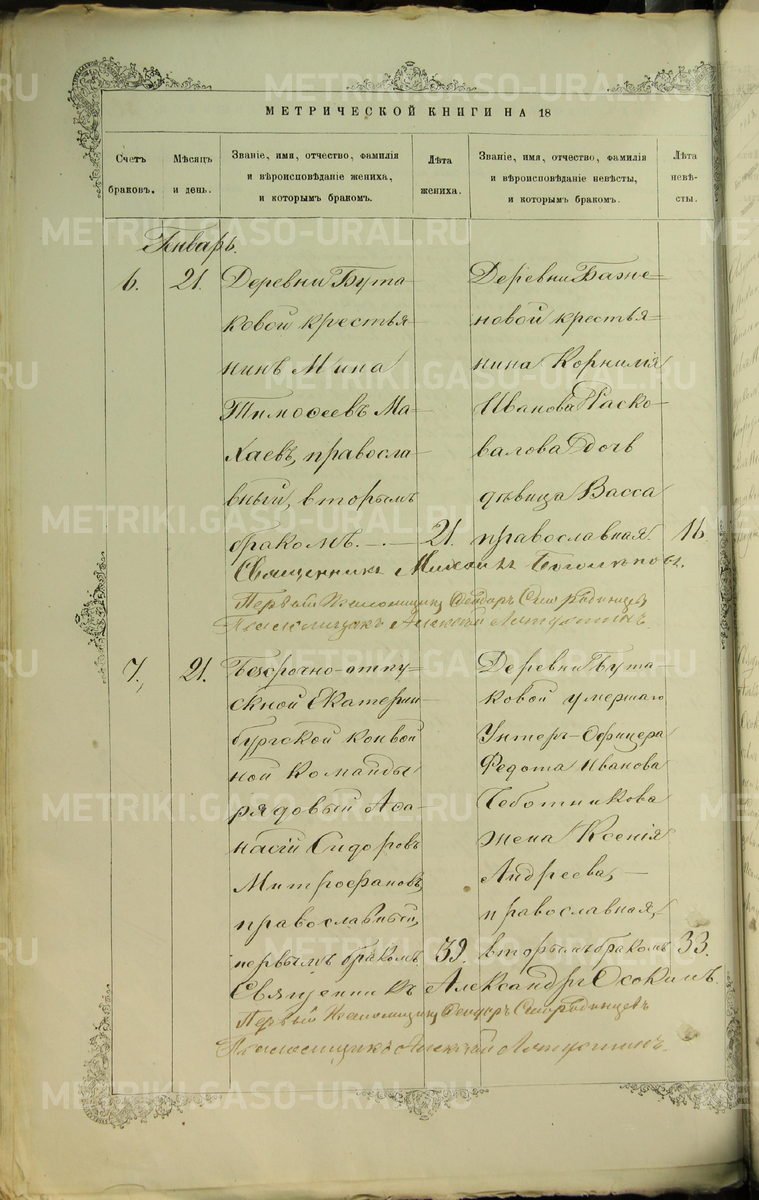 МЕТРИЧЕСКОЙ КНИГИ НА 18
Счетъ
браковъ.
Мѣсяцъ
и день.
Званіе, имя, отчество, фамилія
и вѣроисповѣданіе жениха,
и которымъ бракомъ.
Лѣта
жениха.
Званіе, имя, отчество, фамилія
и вѣроисповѣданіе невѣсты,
и которымъ бракомъ.
Лѣта
невѣ-
сты.
Январь.
6.
21.
Деревни Бута-
ковой крестья-
нинъ Мина
Тимоѳеевъ Ма-
хаевъ, правосла-
вный, вторымъ
бракомъ.
21.
Деревни Баже-
новой крестья-
нина Корнилія
Иванова Раско-
валова дочь
дѣвица Васса
православная.
16.
Священникъ Михаилъ
Первый Псаломщикъ
Псаломщикъ Алексѣй
7,
21.
Безсрочно-отпу-
скной Екатерин-
бургской конвой-
ной команды
рядовый Аѳа-
насій Сидоровъ
Митрофановъ,
православный,
первымъ бракомъ
39.
Деревни Бута-
ковой умершаго
Унтеръ-Офицера
Федота Иванова
Чеботникова
жена Ксенія
Андреева,
православная,
вторымъ бракомъ
33.
Священникъ Александръ Осокинъ.
Первый Псаломщикъ
Псаломщикъ Алексѣй
METRIKI.GASO-URAL.RU